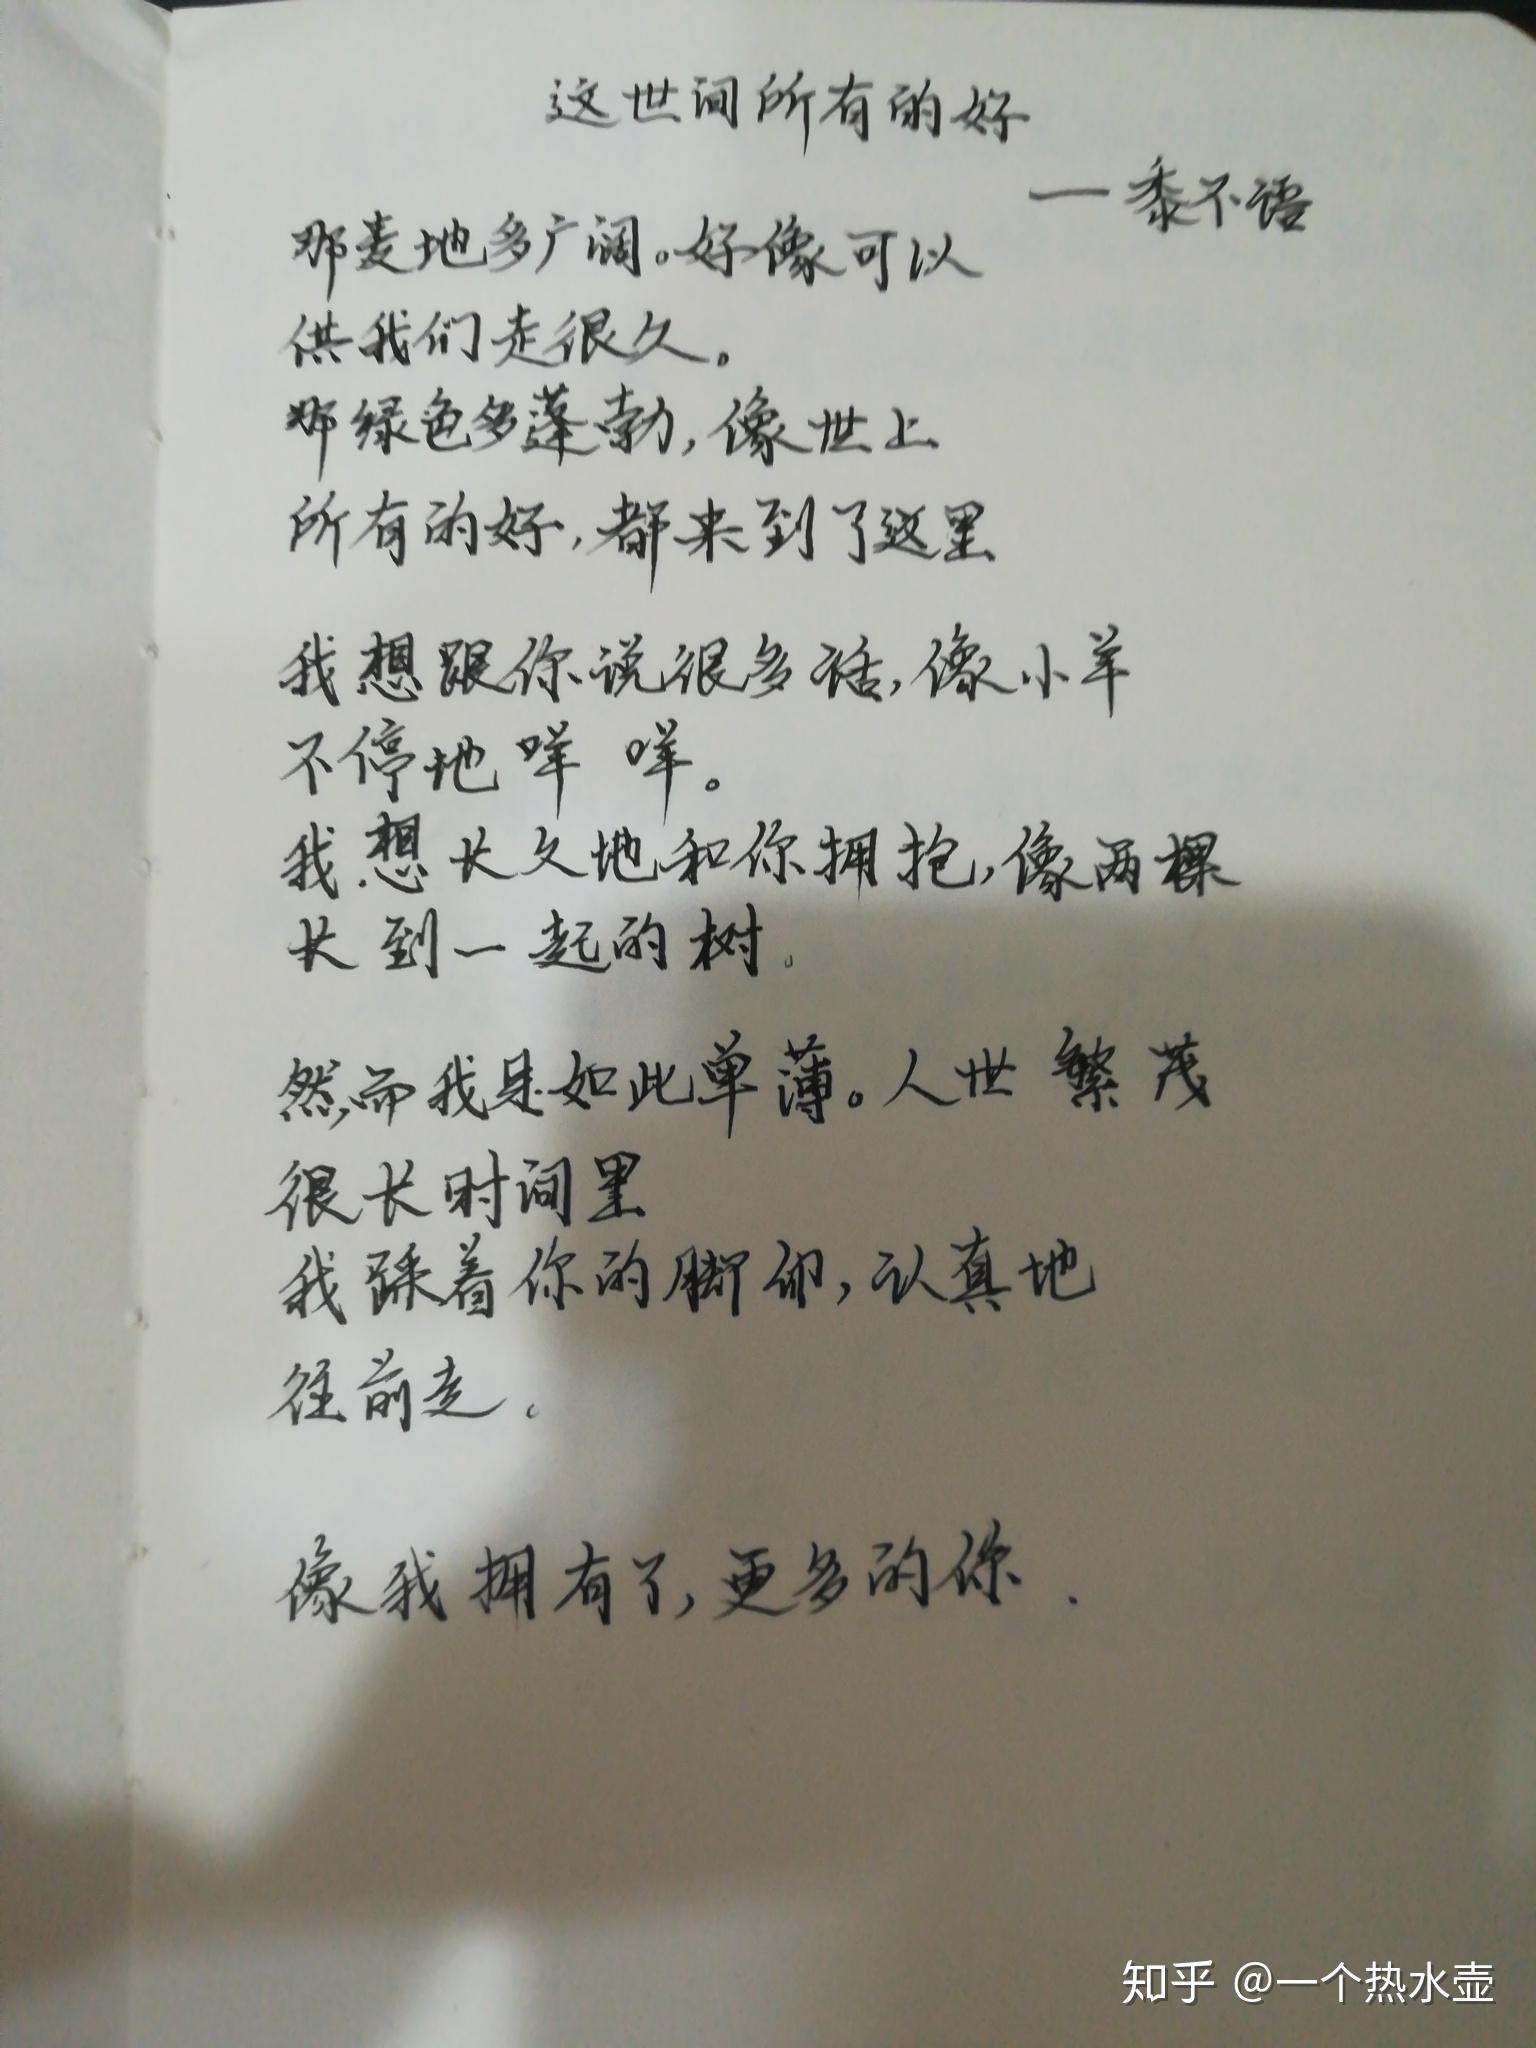 这世间所有的好
一黍不语
那麦地多广阔。好像可以
供我们走很久。
那绿色多蓬勃,像世上
所有的好,都来到了这里
我想跟你说很多话,像小羊
不停地咩 咩。
我想长久地和你拥抱,像两棵
长到一起的树。
然而我是如此单薄。人世 繁茂
很长时间里
我踩着你的脚印,认真地
往前走。
像我拥有了,更多的你.
知乎 @一个热水壶